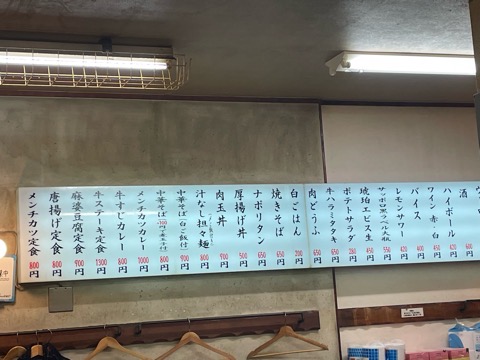 酒
ハイボール 600円
ワイン 赤・白 420円
バイス 450円
レモンサワー 400円
サッポロ黒ラベル大瓶 420円
琥珀エビス生 550円
ポテトサラダ 450円
牛ハラミタタキ 280円
肉どうふ 650円
白ごはん 200円
焼きそば 650円
ナポリタン 650円
厚揚げ丼 500円
肉玉丼 900円
汁なし担々麺 800円
中華そば(白ご飯付) 900円
中華そば
メンチカツカレー 1000円
牛すじカレー 800円
牛ステーキ定食 1300円
麻婆豆腐定食 900円
唐揚げ定食 800円
メンチカツ定食 800円